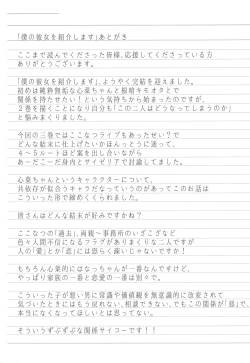 「僕の彼女を紹介します」あとがき
ここまで読んでくださった皆様、応援してくださっている方
ありがとうございます。
「僕の彼女を紹介します」、ようやく完結を迎えました。
初めは純粋無垢な心菜ちゃんと根暗キモオタとで
関係を持たせたい！という気持ちから始まったのですが、
２巻を描くことになり自分も「この二人はどうなってしまうのか」
と悩みまくりました。
今回の三巻ではここなつライブもあったせい？で
どんな結末に仕上げたいかほんっとうに迷って、
４～５ルートほど案を出し合いながら
あーだこーだ身内とサイゼリアで討論してました。
心菜ちゃんというキャラクターについて、
共依存が似合うキャラだなっていうのがあってこのお話は
こういった形で締めくくられました。
皆さんはどんな結末が好みですかね？
ここなつの「過去」、両親～事務所のいざこざなど
色々人間不信になるフラグがありまくりな二人ですが
人の「愛」とか「恋」には恐らく疎いじゃないですか！
もちろん心菜的にはなっちゃんが一番なんですけど、
やっぱり家族の一番と恋愛の一番は別々で、
こういった子が悪い男に常識や価値観を無意識的に改変されて
気づいたときにはもう戻れない、相談できない、でもこの関係が「悪」で、
本当になくなってほしいとは思ってない。
そういうずぶずぶな関係サイコーです！！